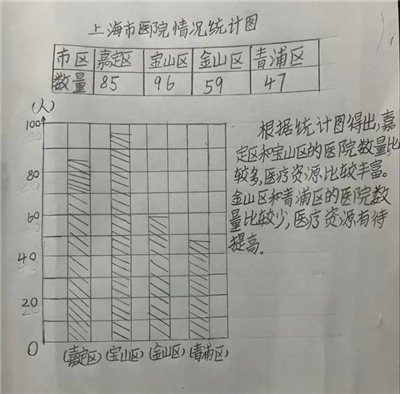 上海市医院情况统计图
市区 嘉定区 宝山区 金山区 青浦区
数量 85 96 59 47
(人)
100
80
60
40
20
0
(嘉定区) (宝山区) (金山区) (青浦区)
根据统计图得出,嘉
定区和宝山区的医院数量比
较多,医疗资源比较丰富。
金山区和青浦区的医院数
量比较少,医疗资源有待
提高。